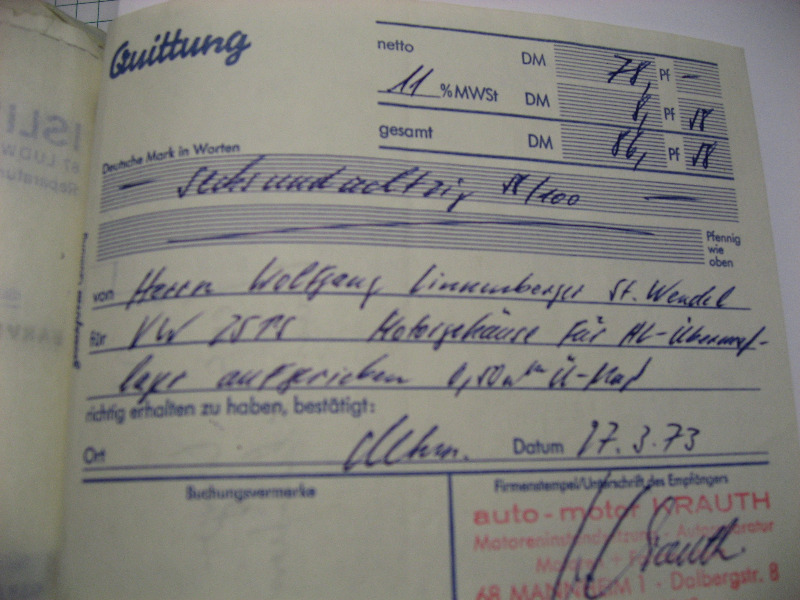 Quittung
netto DM 78, Pf —
11 % MWSt DM 8, Pf 58
gesamt DM 86, Pf 58
Deutsche Mark in Worten
— sechsundachtzig 58/100 —
Pfennig
wie
oben
von Herrn Wolfgang Linnenberger St. Wendel
für VW 25 PS Motorgehäuse für HL-Übermaß-
lager aufgerieben 0,50 mm Ü-Maß
richtig erhalten zu haben, bestätigt:
Ort Mhm. Datum 17.3.73
Buchungsvermerke
Firmenstempel/Unterschrift des Empfängers
auto-motor KRAUTH
Motoreninstandsetzung - Autoreparatur
Motoren +
68 MANNHEIM 1 - Dalbergstr. 8
Krauth
ISLI
67 LUDW
Reparatur